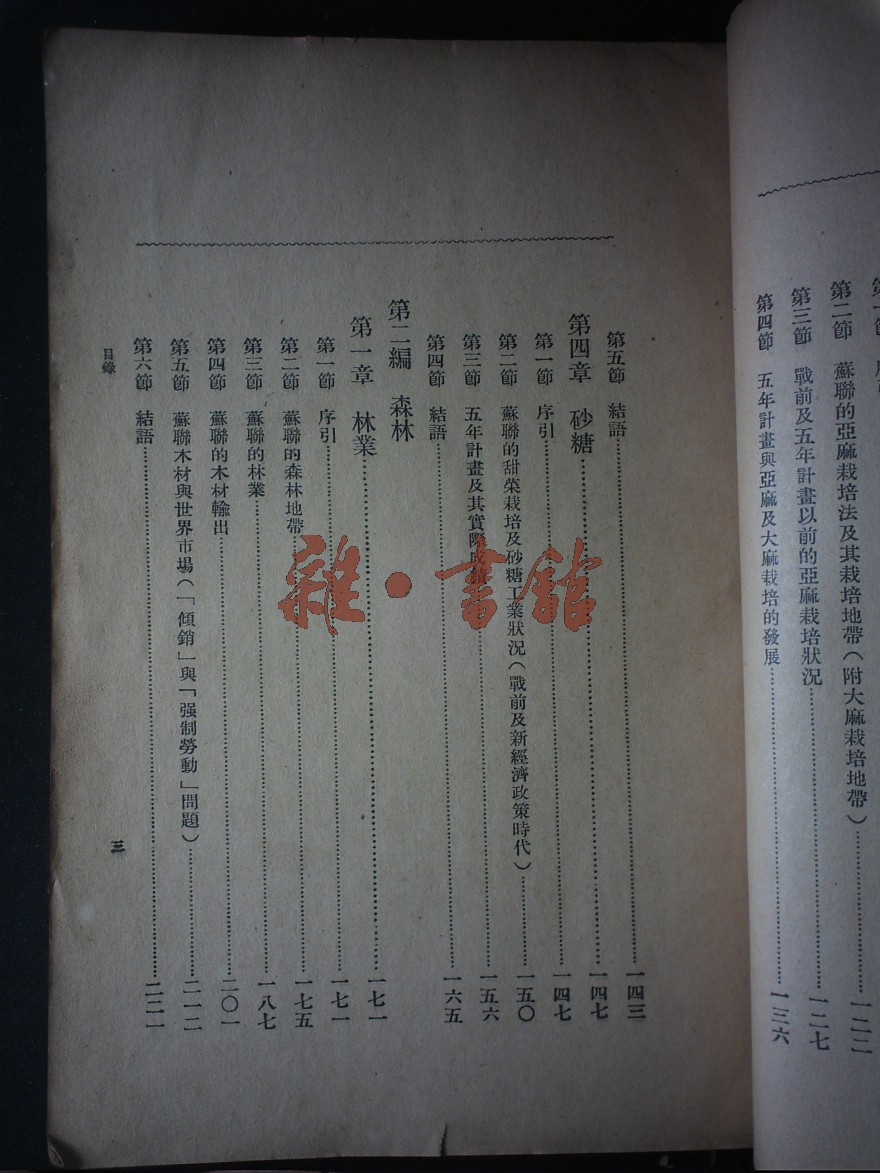 第二節 蘇聯的亞麻栽培法及其栽培地帶(附大麻栽培地帶)…一二二
第三節 戰前及五年計畫以前的亞麻栽培狀況…一二七
第四節 五年計畫與亞麻及大麻栽培的發展…一三六
第五節 結語…一四三
第四章 砂糖…一四七
第一節 序引…一四七
第二節 蘇聯的甜菜栽培及砂糖工業狀況(戰前及新經濟政策時代)…一五〇
第三節 五年計畫及其實際成績…一五六
第四節 結語…一六五
第二編 森林
第一章 林業…一七一
第一節 序引…一七一
第二節 蘇聯的森林地帶…一七五
第三節 蘇聯的林業…一八七
第四節 蘇聯的木材輸出…二〇一
第五節 蘇聯木材與世界市場(「傾銷」與「强制勞動」問題)…二一二
第六節 結語…二二一
目錄
三
雜·書館